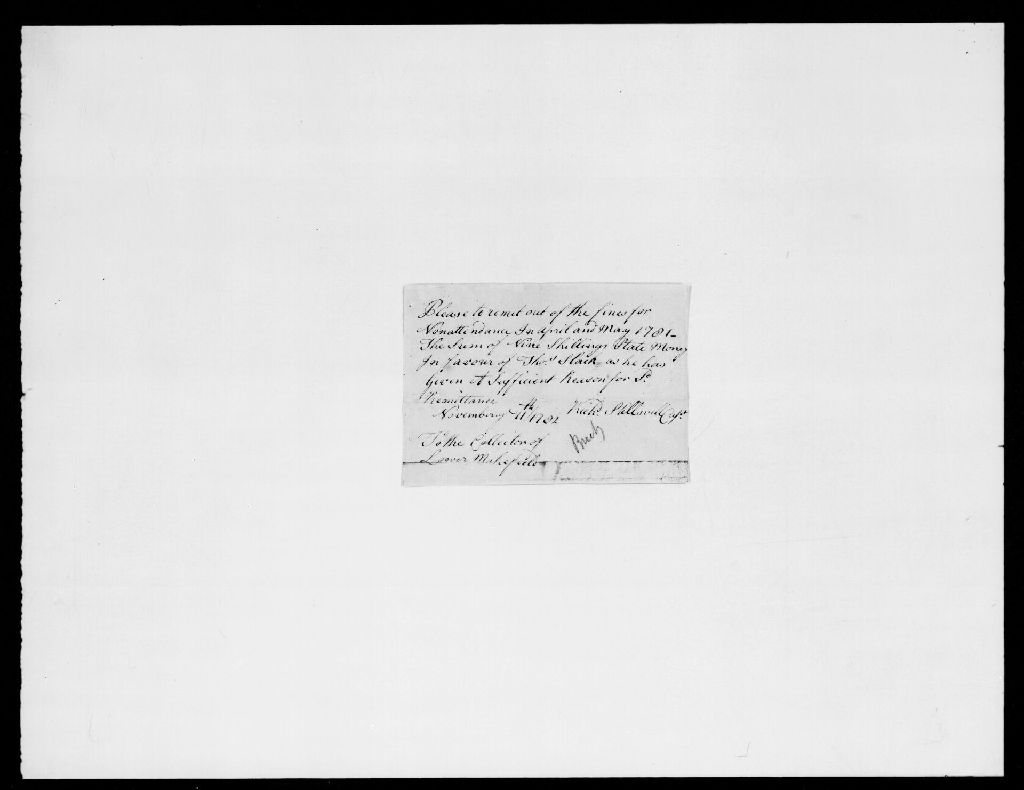 Please to remit out of the fines for
Nonattendance In April and May 1781
The Sum of Nine Shillings State Money
In favour of Thos Slack as he has
Given A Sufficient Reason for Sd
Remittance
Novembr ye 11th 1782 Richd Stillwell Capt
Bucks
To the Collector of
Lower Makefield